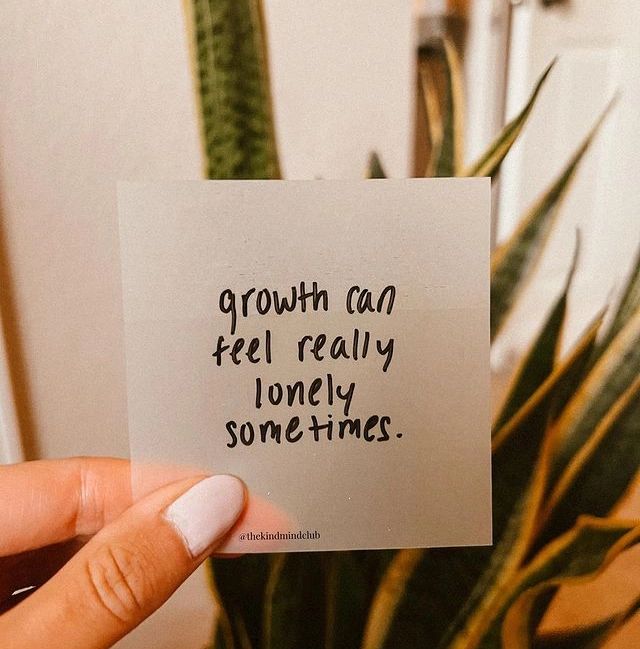 growth can
feel really
lonely
sometimes.
@thekindmindclub